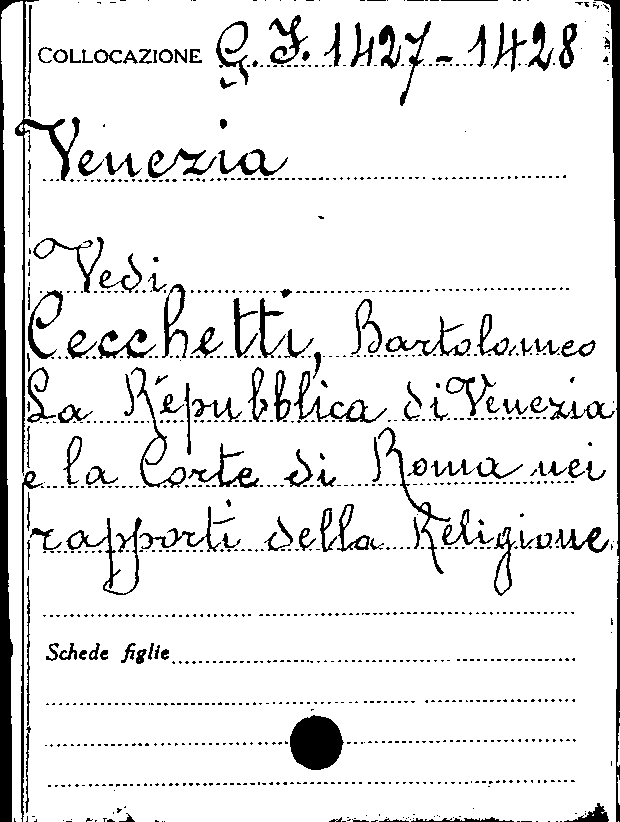 COLLOCAZIONE G. F. 1427-1428
Venezia
Vedi
Cecchetti, Bartolomeo
La Repubblica di Venezia
e la Corte di Roma nei
rapporti della Religione
Schede figlie